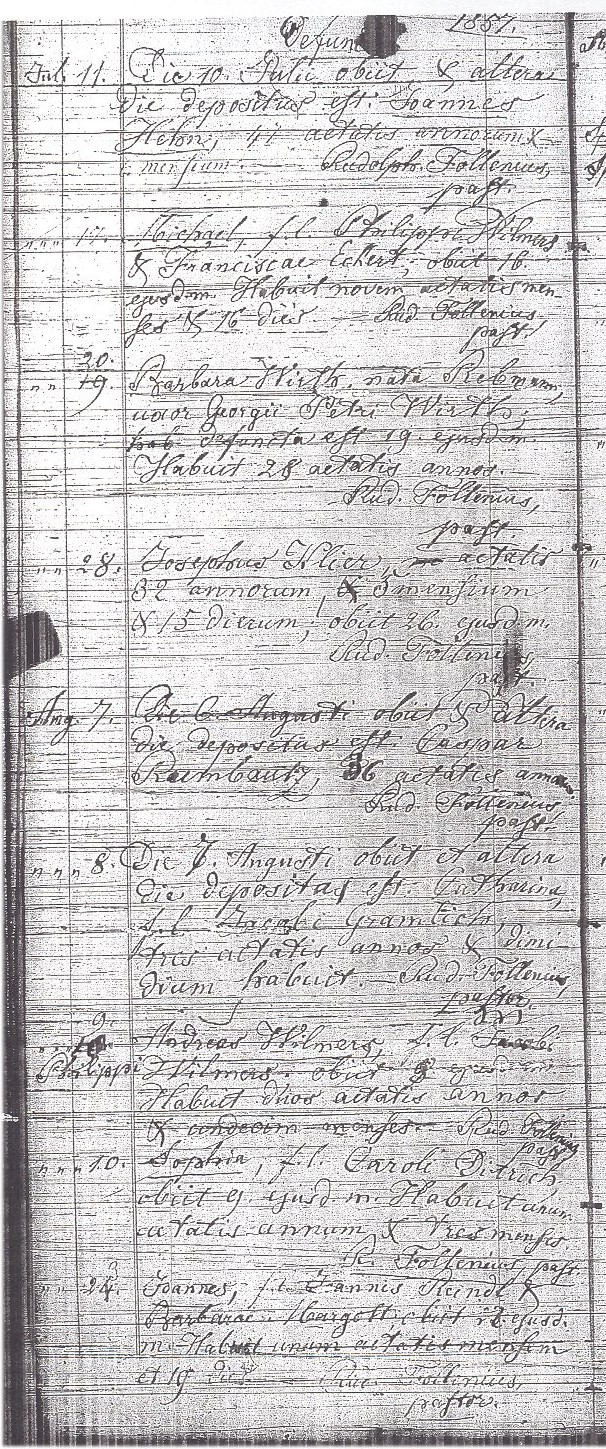 Defun 1857.
Jul. 11. Die 10. Julii obiit & altera
die depositus est: Joannes
Hehn, 44 aetatis annorum &
mensium. — Rudolph. Follenius,
past.
" " 17. Michael, f. l. Philippi Wilmers
& Franciscae Eckert, obiit 16.
ejusd. m. Habuit novem aetatis men-
ses & 16 dies — Rud. Follenius
past.
20.
" " 19. Barbara Wirth, nata Rebmann,
uxor Georgii Petri Wirth,
hab. defuncta est 19. ejusd. m.
Habuit 28 aetatis annos.
Rud. Follenius,
past
" " 28. Josephus Klier, aetatis
32 annorum, & 5 mensium
& 15 dierum, obiit 26. ejusd. m.
Rud. Follenius,
past.
Aug. 7. Die 6. Augusti obiit & altera
die depositus est Caspar
36 aetatis annor.
Rud. Follenius,
past.
" " 8. Die 7. Augusti obiit et altera
die depositas est. Catharina,
f. l. Jacobi Gramlich,
tres aetatis annos & dimi
dium habuit. — Rud. Follenius,
pastor.
9.
Andreas Wilmers, f. l. Jacobi
Philippi Wilmers. obiit 8 ejusd. m
Habuit duos aetatis annos
& undecim menses. — Rud. Follenius
past
" " 10. Sophia, f. l. Caroli Ditrich,
obiit 9 ejusd. m. Habuit unum
aetatis annum & tres menses.
R. Follenius, past.
" " 24. Joannes, f. l. Joannis Reindl &
Barbarae Margott obiit 22 ejusd.
m. Habuit unum aetatis mensem
et 19 dies — Rud. Follenius,
pastor.